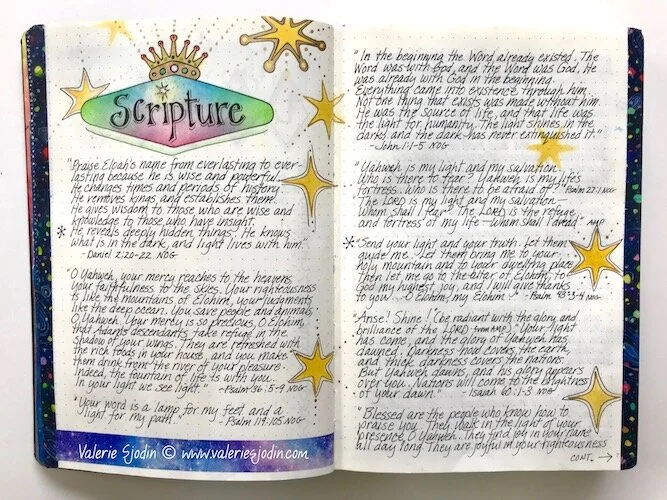 Scripture
"Praise Eloah's name from everlasting to ever-
lasting because he is wise and powerful.
He changes times and periods of history.
He removes kings and establishes them.
He gives wisdom to those who are wise and
knowledge to those who have insight.
* He reveals deeply hidden things. He knows
what is in the dark, and light lives with him."
- Daniel 2:20-22 NOG
"O Yahweh, your mercy reaches to the heavens,
your faithfulness to the skies. Your righteousness
is like the mountains of Elohim, your judgments
like the deep ocean. You save people and animals,
O Yahweh. Your mercy is so precious, O Elohim,
that Adam's descendants take refuge in the
shadow of your wings. They are refreshed with
the rich foods in your house, and you make
them drink from the river of your pleasure.
Indeed, the fountain of life is with you.
In your light we see light." - Psalm 36:5-9 NOG
"Your word is a lamp for my feet and a
light for my path." - Psalm 119:105 NOG
Valerie Sjodin © www.valeriesjodin.com
"In the beginning the Word already existed. The
Word was with God, and the Word was God. He
was already with God in the beginning.
Everything came into existence through him.
Not one thing that exists was made without him.
He was the source of life, and that life was
the light for humanity. The light shines in the
dark, and the dark has never extinguished it."
- John 1:1-5 NOG
"Yahweh is my light and my salvation.
Who is there to fear? Yahweh is my life's
fortress. Who is there to be afraid of?" Psalm 27:1 NOG
The LORD is my light and my salvation—
Whom shall I fear? The LORD is the refuge
and fortress of my life—Whom shall I dread" AMP
* "Send your light and your truth. Let them
guide me. Let them bring me to your
holy mountain and to your dwelling place.
Then let me go to the altar of Elohim, to
God my highest joy, and I will give thanks
to you O Elohim, my Elohim." - Psalm 43:3-4 NOG
"Arise! Shine! (be radiant with the glory and
brilliance of the LORD from AMP) Your light
has come, and the glory of Yahweh has
dawned. Darkness now covers the earth,
and thick darkness covers the nations.
But Yahweh dawns, and his glory appears
over you. Nations will come to the brightness
of your dawn." - Isaiah 60:1-3 NOG
"Blessed are the people who know how to
praise you. They walk in the light of your
presence, O Yahweh. They find joy in your name
all day long. They are joyful in your righteousness
CONT. →